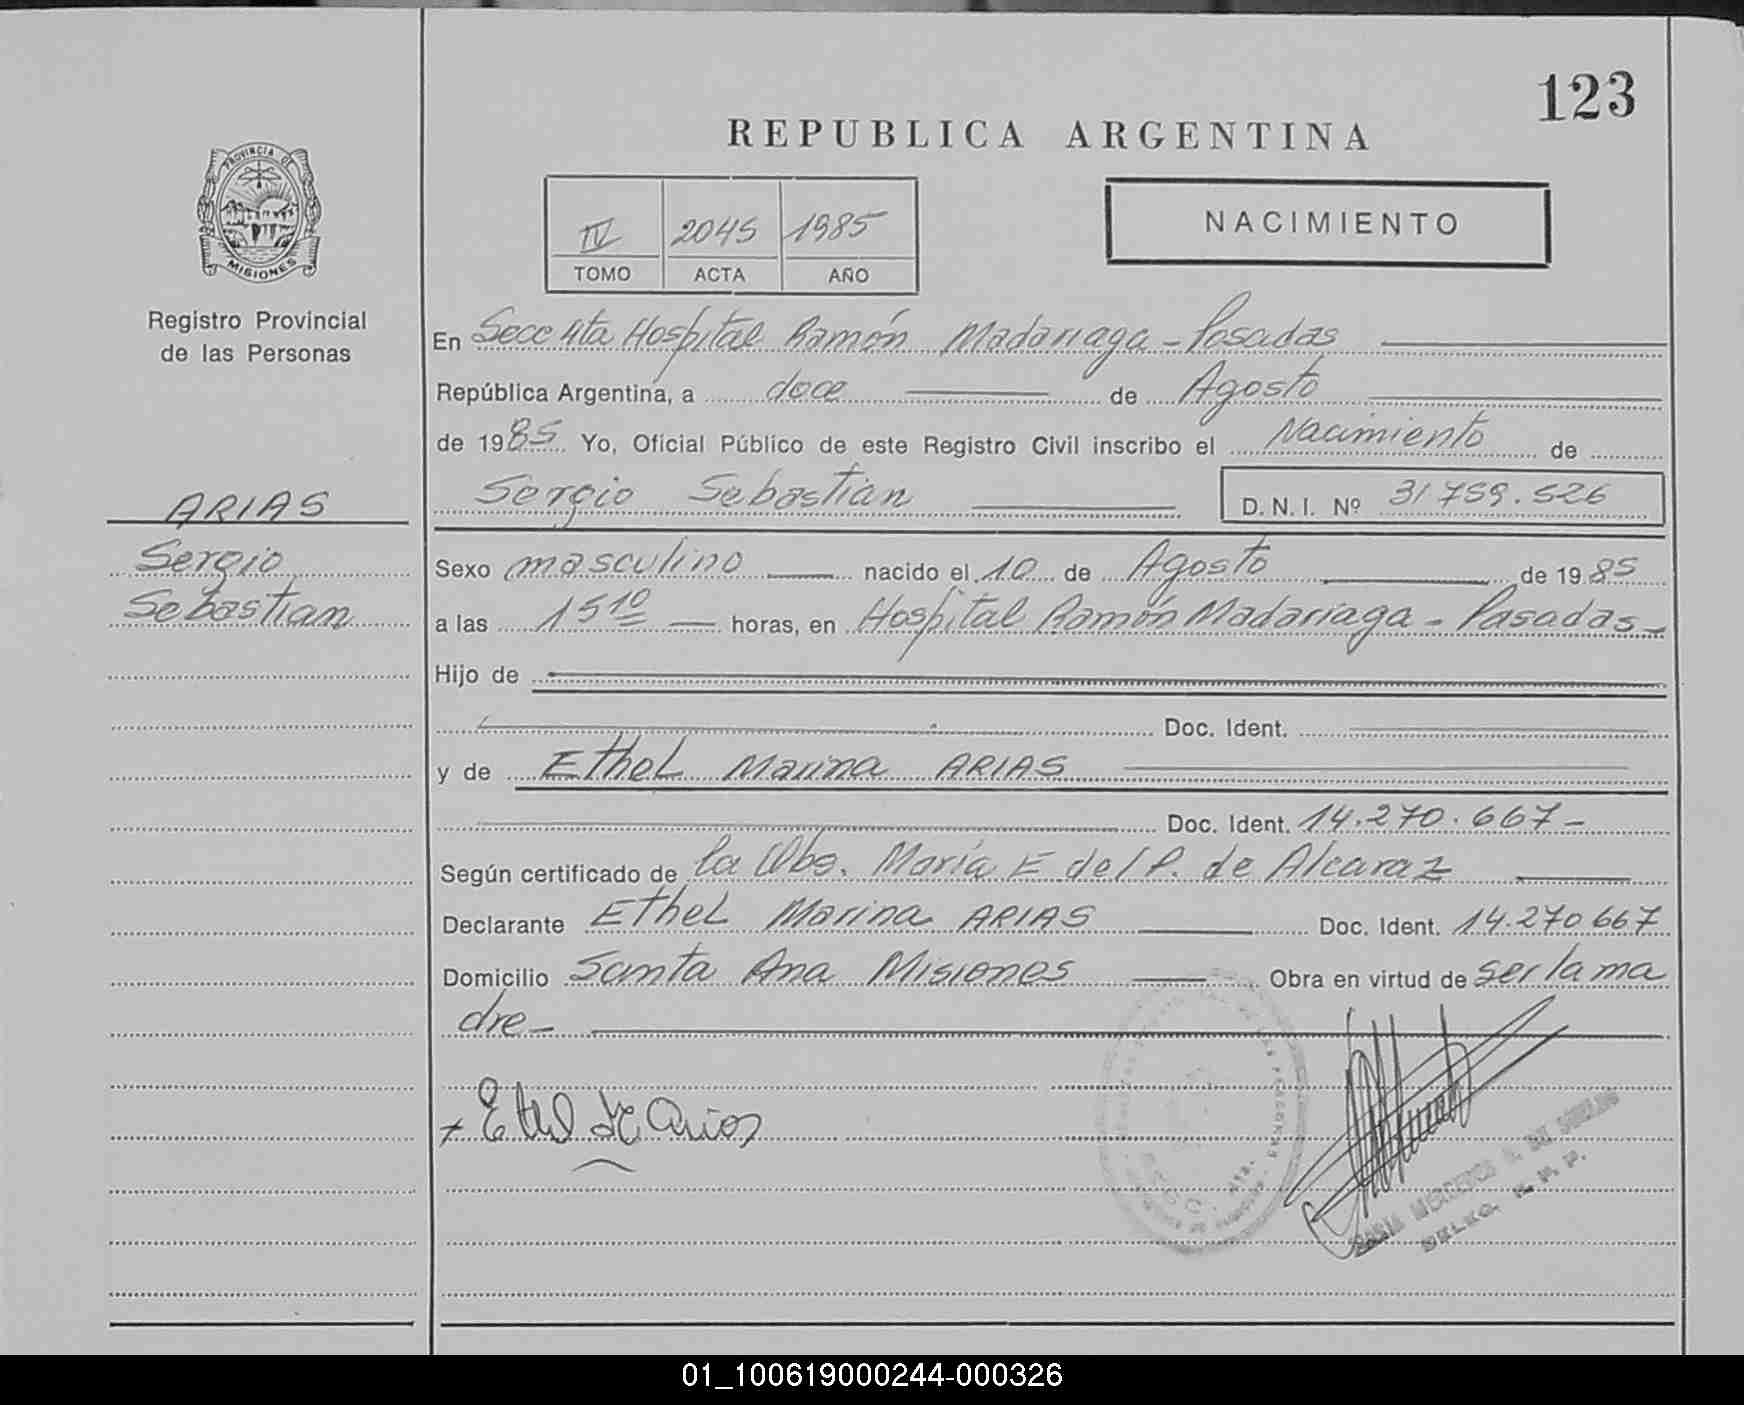 123
REPUBLICA ARGENTINA
PROVINCIA DE
MISIONES
Registro Provincial
de las Personas
IV 2045 1985
TOMO ACTA AÑO
NACIMIENTO
En Secc 4ta Hospital Ramón Madariaga - Posadas
República Argentina, a doce de Agosto
de 1985 Yo, Oficial Público de este Registro Civil inscribo el Nacimiento de
Sergio Sebastian D.N.I. Nº 31.759.526
ARIAS
Sergio
Sebastian
Sexo masculino nacido el 10 de Agosto de 1985
a las 15 10 horas, en Hospital Ramón Madariaga - Posadas -
Hijo de
Doc. Ident.
y de Ethel Marina ARIAS
Doc. Ident. 14.270.667-
Según certificado de la Obs. María E del P. de Alcaraz
Declarante Ethel Marina ARIAS Doc. Ident. 14.270 667
Domicilio Santa Ana Misiones Obra en virtud de ser la ma
dre-
01_100619000244-000326